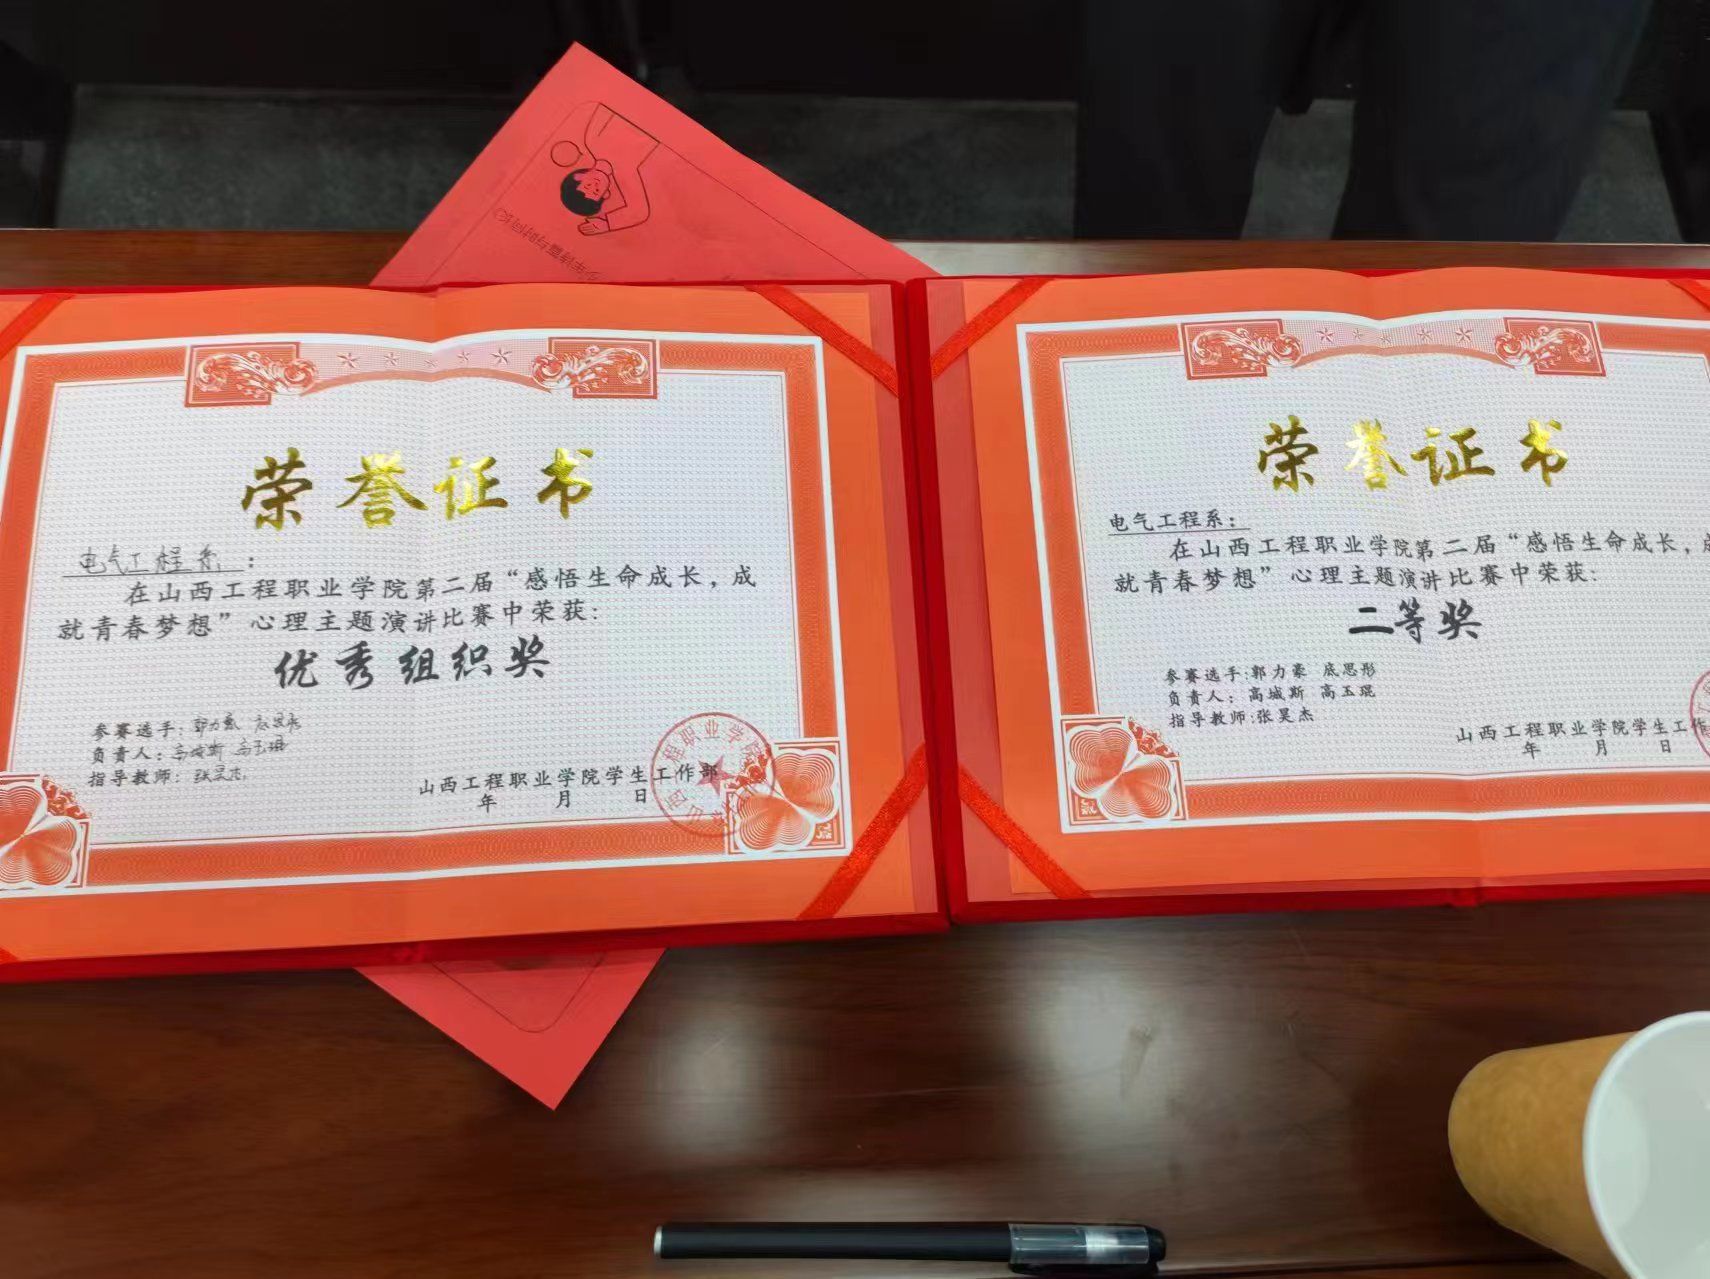 少年诗篇与时间长》
荣誉证书
电气工程系：
在山西工程职业学院第二届“感悟生命成长，成
就青春梦想”心理主题演讲比赛中荣获：
优秀组织奖
参赛选手：郭力豪 底思彤
负责人：高城斯 高玉琨
指导教师：张昊杰
山西工程职业学院学生工作部
年 月 日
荣誉证书
电气工程系：
在山西工程职业学院第二届“感悟生命成长，成
就青春梦想”心理主题演讲比赛中荣获：
二等奖
参赛选手：郭力豪 底思彤
负责人：高城斯 高玉琨
指导教师：张昊杰
山西工程职业学院学生工作
年 月 日